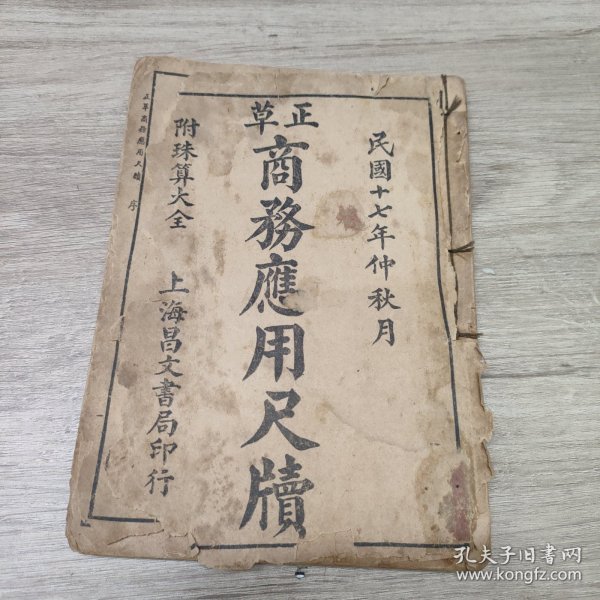 民國十七年仲秋月
正草
商務應用尺牘
附珠算大全
上海昌文書局印行
正草商務應用尺牘 序
孔夫子旧书网
www.kongfz.com